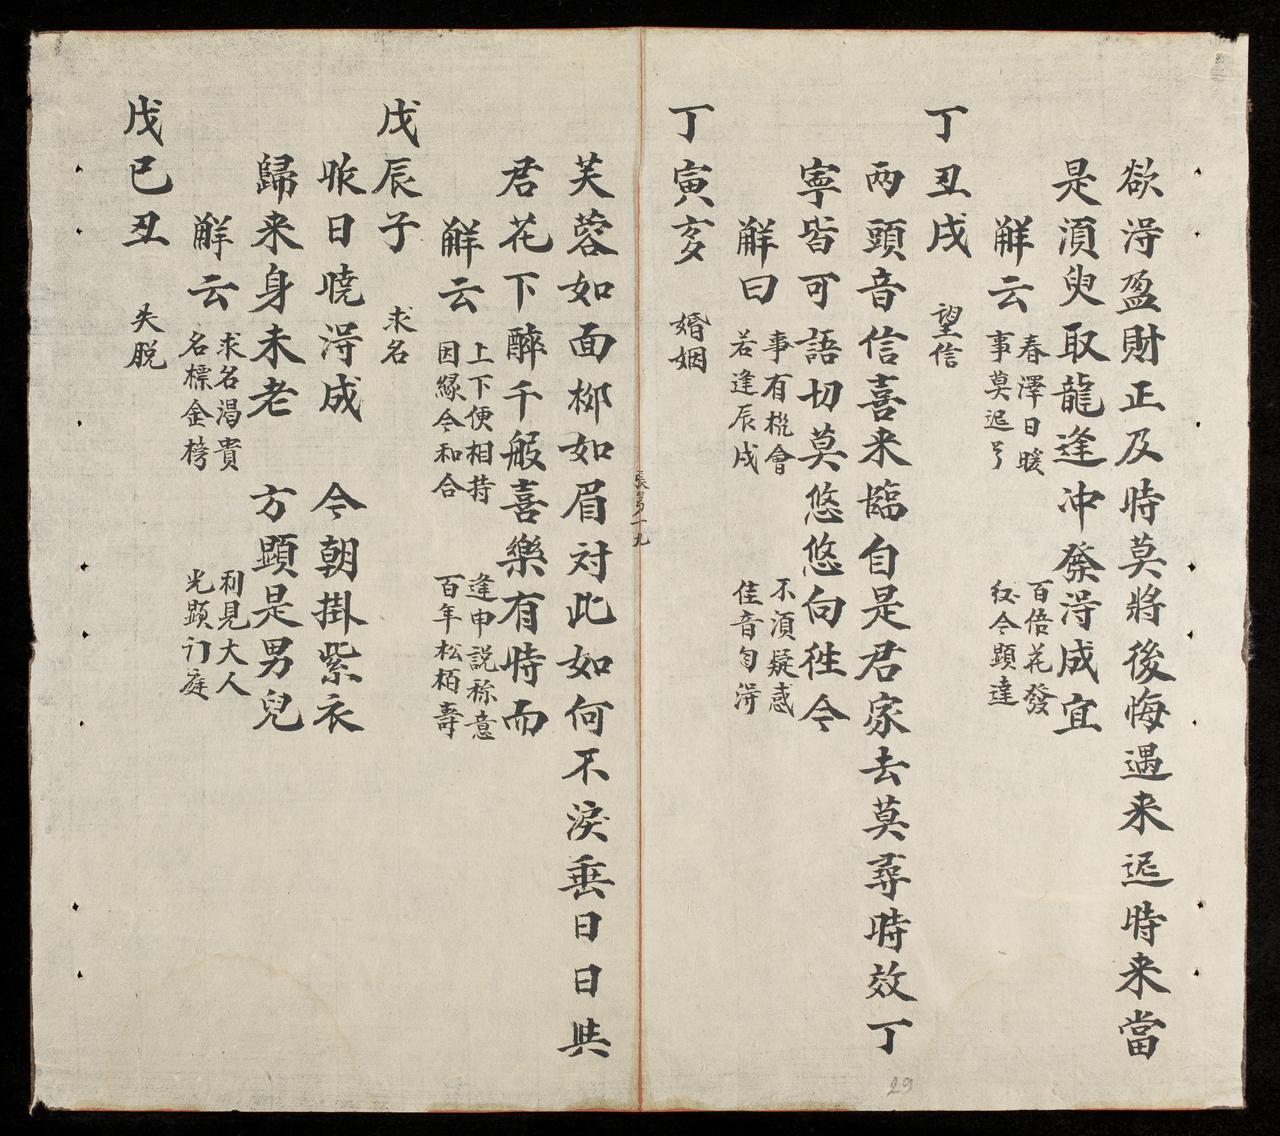 欲淂盈財正及時莫將後悔遇来遟時来當
是湏臾取龍逢冲發淂成宜
觧云 春澤日暖 百倍花發
事莫遟 令顕達
丁丑戌 望信
两頭音信喜来臨自是君家去莫尋時效丁
寧皆可語切莫悠悠向徃今
觧曰 事有机會 不湏疑惑
若逢辰戌 佳音自淂
丁寅亥 婚姻
芙蓉如面柳如眉対此如何不淚垂日日共
君花下醉千般喜樂有時而
觧云 上下便相持 逢申説称意
因緣令和合 百年松栢壽
戊辰子 求名
昨日曉淂成 今朝掛紫衣
歸来身未老 方顕是男兒
觧云 求名渴貴 利見大人
名標金榜 光顕门庭
戊巳丑 失脱
29